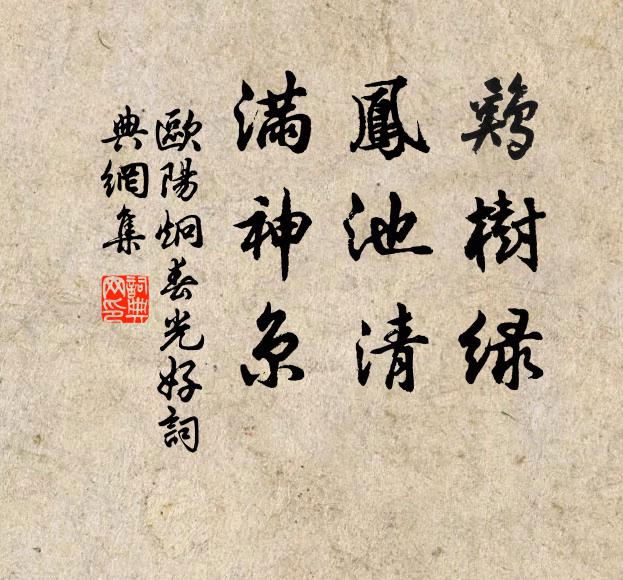 鷄樹綠
鳳池清
滿神京
歐陽炯春光好詞
典網集
詞典
网印